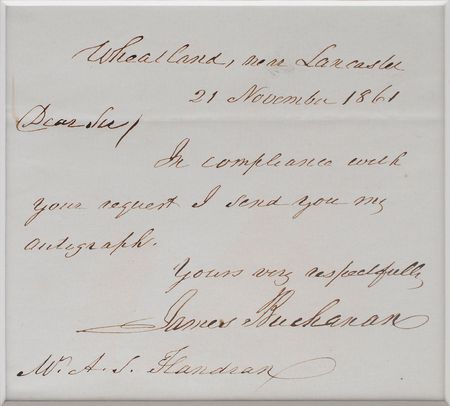 Wheatland, near Lancaster
21 November 1861
Dear Sir,
In compliance with
your request I send you my
autograph.
Yours very respectfully
James Buchanan
Mr. A. S. Flandrau